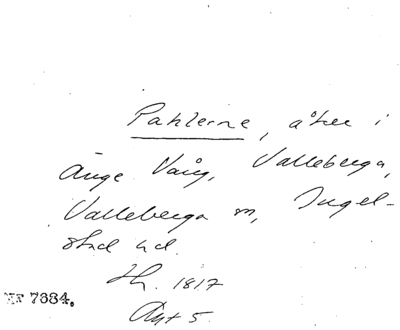 Pahlerne, åker i
Änge Vång, Valleberga,
Valleberga sn, Ingel-
stad hd.
Sk. 1817
Akt 5.
Nr 7384.